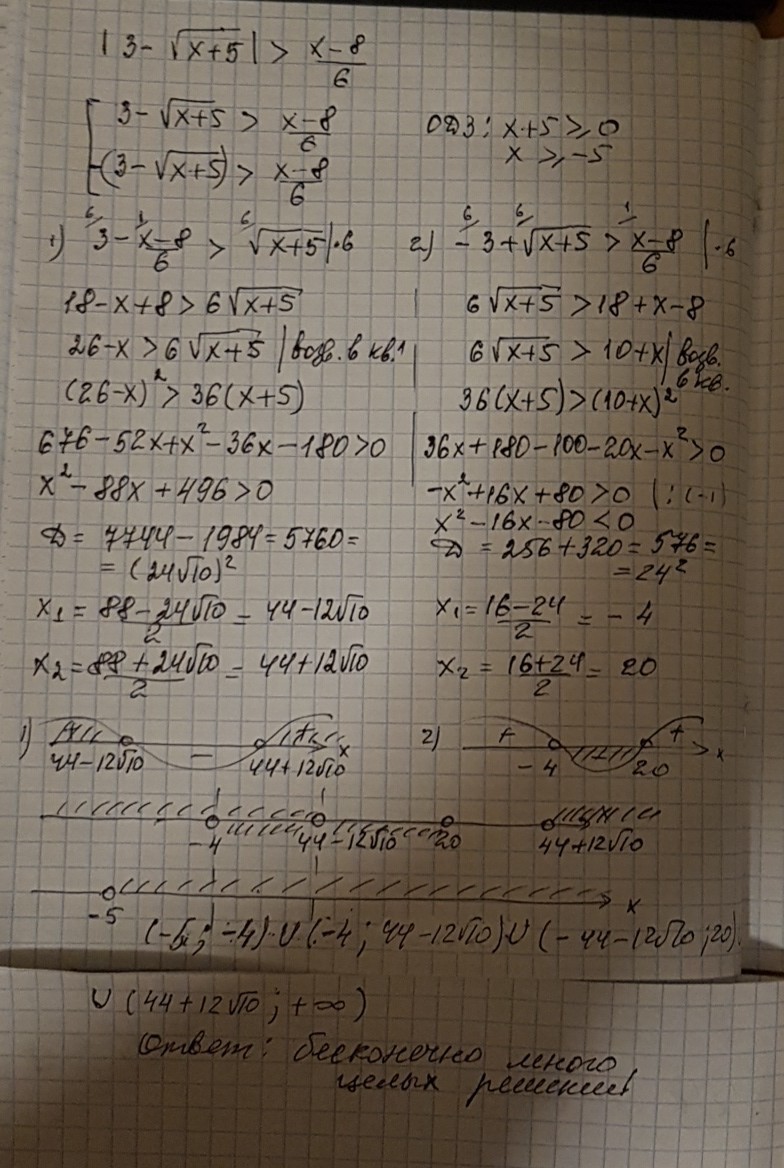 |3-√(x+5)| > (x-8)/6
[ 3-√(x+5) > (x-8)/6
ОДЗ: x+5≥0
-(3-√(x+5)) > (x-8)/6
x≥-5
1) 3 - (x-8)/6 > √(x+5) | ·6
18-x+8 > 6√(x+5)
26-x > 6√(x+5) | возв. в кв.
(26-x)² > 36(x+5)
676-52x+x²-36x-180>0
x²-88x+496>0
D = 7744-1984=5760=
= (24√10)²
x₁ = (88-24√10)/2 = 44-12√10
x₂ = (88+24√10)/2 = 44+12√10
2) -3+√(x+5) > (x-8)/6 | ·6
6√(x+5) > 18+x-8
6√(x+5) > 10+x | возв. в кв.
36(x+5)>(10+x)²
36x+180-100-20x-x²>0
-x²+16x+80>0 | :(-1)
x²-16x-80<0
D = 256+320=576=
=24²
x₁ = (16-24)/2 = -4
x₂ = (16+24)/2 = 20
1) + - + x
44-12√10 44+12√10
2) + + x
-4 20
-4 44-12√10 20 44+12√10
-5 x
(-5; -4) ∪ (-4; 44-12√10) ∪ (-44-12√10; 20)
∪ (44+12√10; +∞)
Ответ: бесконечно много
целых решений